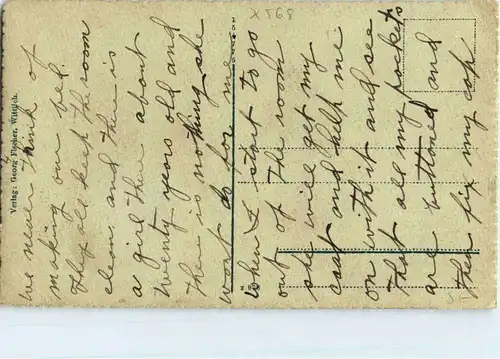 we never think of
making our bed.
They all keep the room
clean, and there is
a girl there about
twenty years old and
there is nothing she
wont do for me
when I start to go
out of the room
she will get my
coat and help me
on with it and see
that all my pockets
are buttoned and
then fix my cap
Verlag: Georg Fischer, Wittlich.
X568